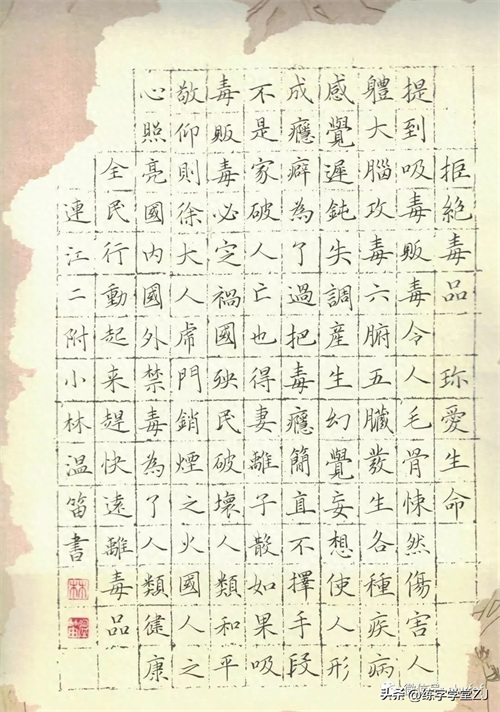 拒絕毒品 珍愛生命
提到吸毒販毒令人毛骨悚然傷害人
體大腦攻毒六腑五臟發生各種疾病
感覺遲鈍失調産生幻覺妄想使人形
成癮癖為了過把毒癮簡直不擇手段
不是家破人亡也得妻離子散如果吸
毒販毒必定禍國殃民破壞人類和平
敬仰則徐大人虎門銷煙之火國人之
心照亮國内國外禁毒為了人類健康
全民行動起来趕快遠離毒品
連江二附小林温笛書
林
头条 @练字学堂ZJ